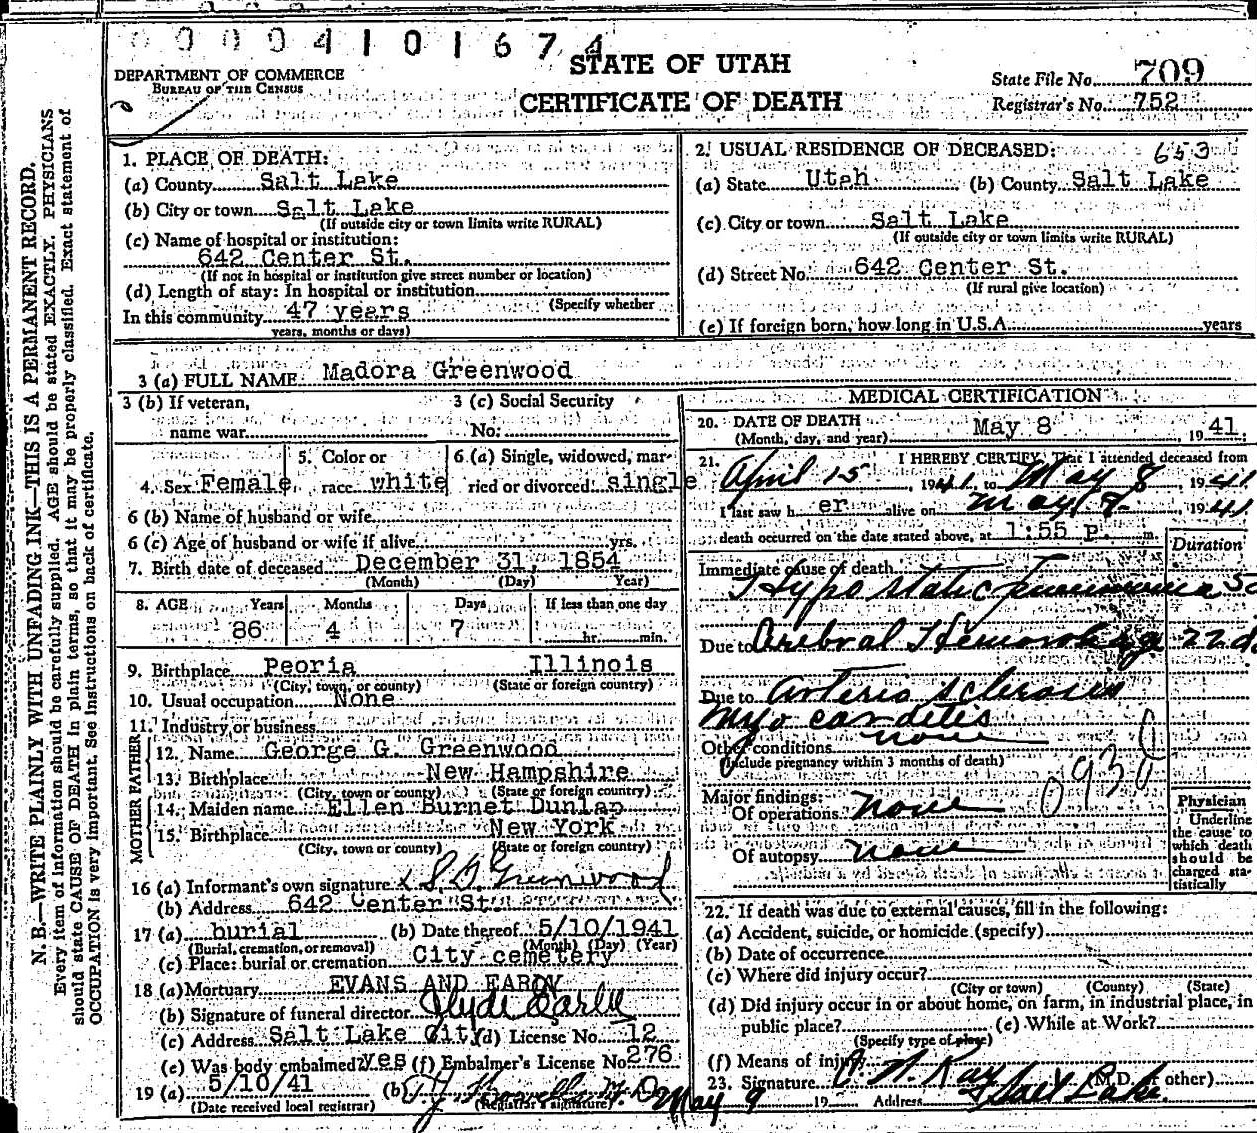 0004101674
STATE OF UTAH
DEPARTMENT OF COMMERCE
BUREAU OF THE CENSUS
CERTIFICATE OF DEATH
State File No. 709
Registrar's No. 752
N. B.—WRITE PLAINLY WITH UNFADING INK—THIS IS A PERMANENT RECORD.
Every item of information should be carefully supplied. AGE should be stated EXACTLY. PHYSICIANS
should state CAUSE OF DEATH in plain terms, so that it may be properly classified. Exact statement of
OCCUPATION is very important. See instructions on back of certificate.
1. PLACE OF DEATH:
(a) County Salt Lake
(b) City or town Salt Lake
(If outside city or town limits write RURAL)
(c) Name of hospital or institution:
642 Center St.
(If not in hospital or institution give street number or location)
(d) Length of stay: In hospital or institution
(Specify whether
In this community 47 years
years, months or days)
2. USUAL RESIDENCE OF DECEASED: 653
(a) State Utah (b) County Salt Lake
(c) City or town Salt Lake
(If outside city or town limits write RURAL)
(d) Street No. 642 Center St.
(If rural give location)
(e) If foreign born, how long in U.S.A. years
3 (a) FULL NAME Madora Greenwood
3 (b) If veteran, 3 (c) Social Security
name war No.
4. Sex Female 5. Color or race white 6 (a) Single, widowed, married or divorced single
6 (b) Name of husband or wife
6 (c) Age of husband or wife if alive yrs.
7. Birth date of deceased December 31, 1854
(Month) (Day) Year)
8. AGE Years Months Days If less than one day
86 4 7 hr. min.
9. Birthplace Peoria Illinois
(City, town, or county) (State or foreign country)
10. Usual occupation None
11. Industry or business
FATHER
12. Name George G. Greenwood
13. Birthplace New Hampshire
(City, town or county) (State or foreign country)
MOTHER
14. Maiden name Ellen Burnet Dunlap
15. Birthplace New York
(City, town or county) (State or foreign country)
16 (a) Informant's own signature x Greenwood
(b) Address 642 Center St.
17 (a) burial (b) Date thereof 5/10/1941
(Burial, cremation, or removal) (Month) (Day) (Year)
(c) Place: burial or cremation City cemetery
18 (a) Mortuary EVANS AND EARLY
(b) Signature of funeral director Clyde Early
(c) Address Salt Lake City (d) License No. 12
(e) Was body embalmed? yes (f) Embalmer's License No. 276
19 (a) 5/10/41 (b)
(Date received local registrar) (Registrar's signature)
MEDICAL CERTIFICATION
20. DATE OF DEATH
(Month, day, and year) May 8, 1941
21. I HEREBY CERTIFY, That I attended deceased from
April 15, 1941, to May 8, 1941
I last saw her alive on May 8, 1941
death occurred on the date stated above, at 1:55 P. m.
Duration
Immediate cause of death
Hypostatic pneumonia
Due to Cerebral Hemorrhage 22d
Due to Arterio sclerosis
Myocarditis
Other conditions none
(Include pregnancy within 3 months of death)
Major findings:
Of operations none
Of autopsy none
Physician
Underline the cause to which death should be charged statistically
22. If death was due to external causes, fill in the following:
(a) Accident, suicide, or homicide (specify)
(b) Date of occurrence
(c) Where did injury occur?
(City or town) (County) (State)
(d) Did injury occur in or about home, on farm, in industrial place, in
public place? (e) While at Work?
(Specify type of place)
(f) Means of injury
23. Signature Ray (M.D. or other)
May 9 19 Address Salt Lake